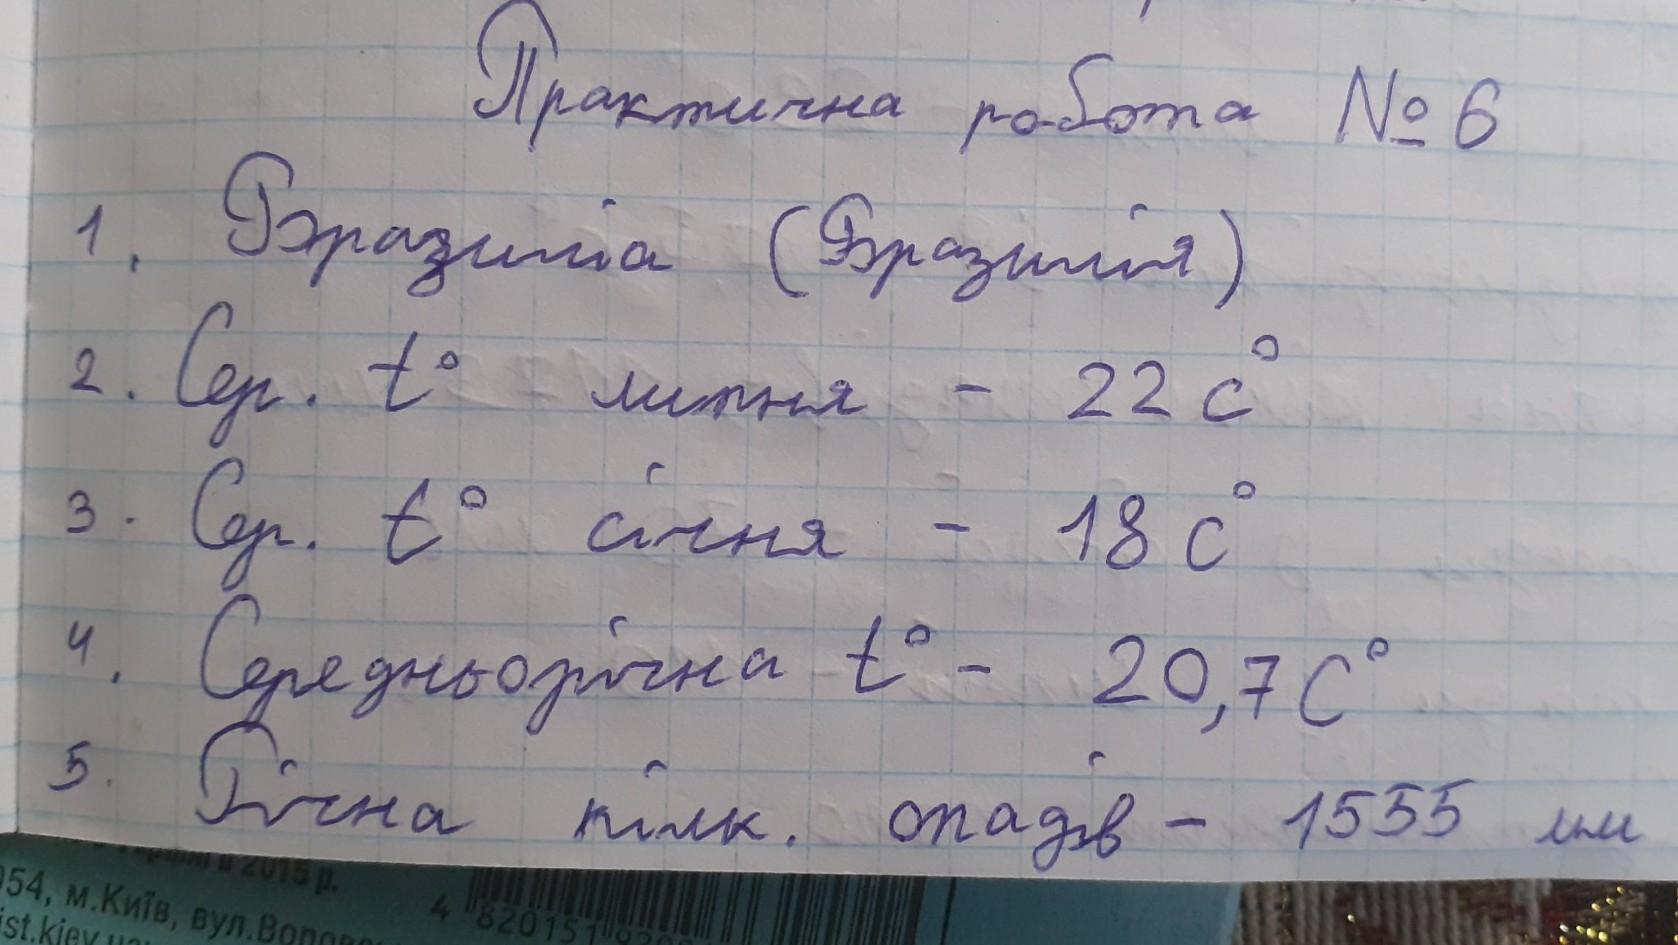 Практична робота № 6
1. Бразилія (Бразилія)
2. Сер. t° липня - 22 с°
3. Сер. t° січня - 18 с°
4. Середньорічна t° - 20,7 С°
5. Річна кільк. опадів - 1555 мм
2015 р.
054, м.Київ, вул.Воровс
ist.kiev.ua
4 820151